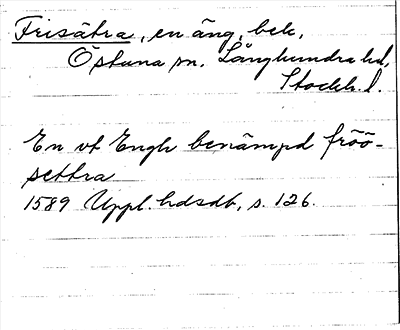 Frisätra, en äng, bek,
Östuna sn. Långhundra hd,
Stockh. l.
En vt Engh benämpd fröö-
settra
1589 Uppl. hdsdb, s. 126.